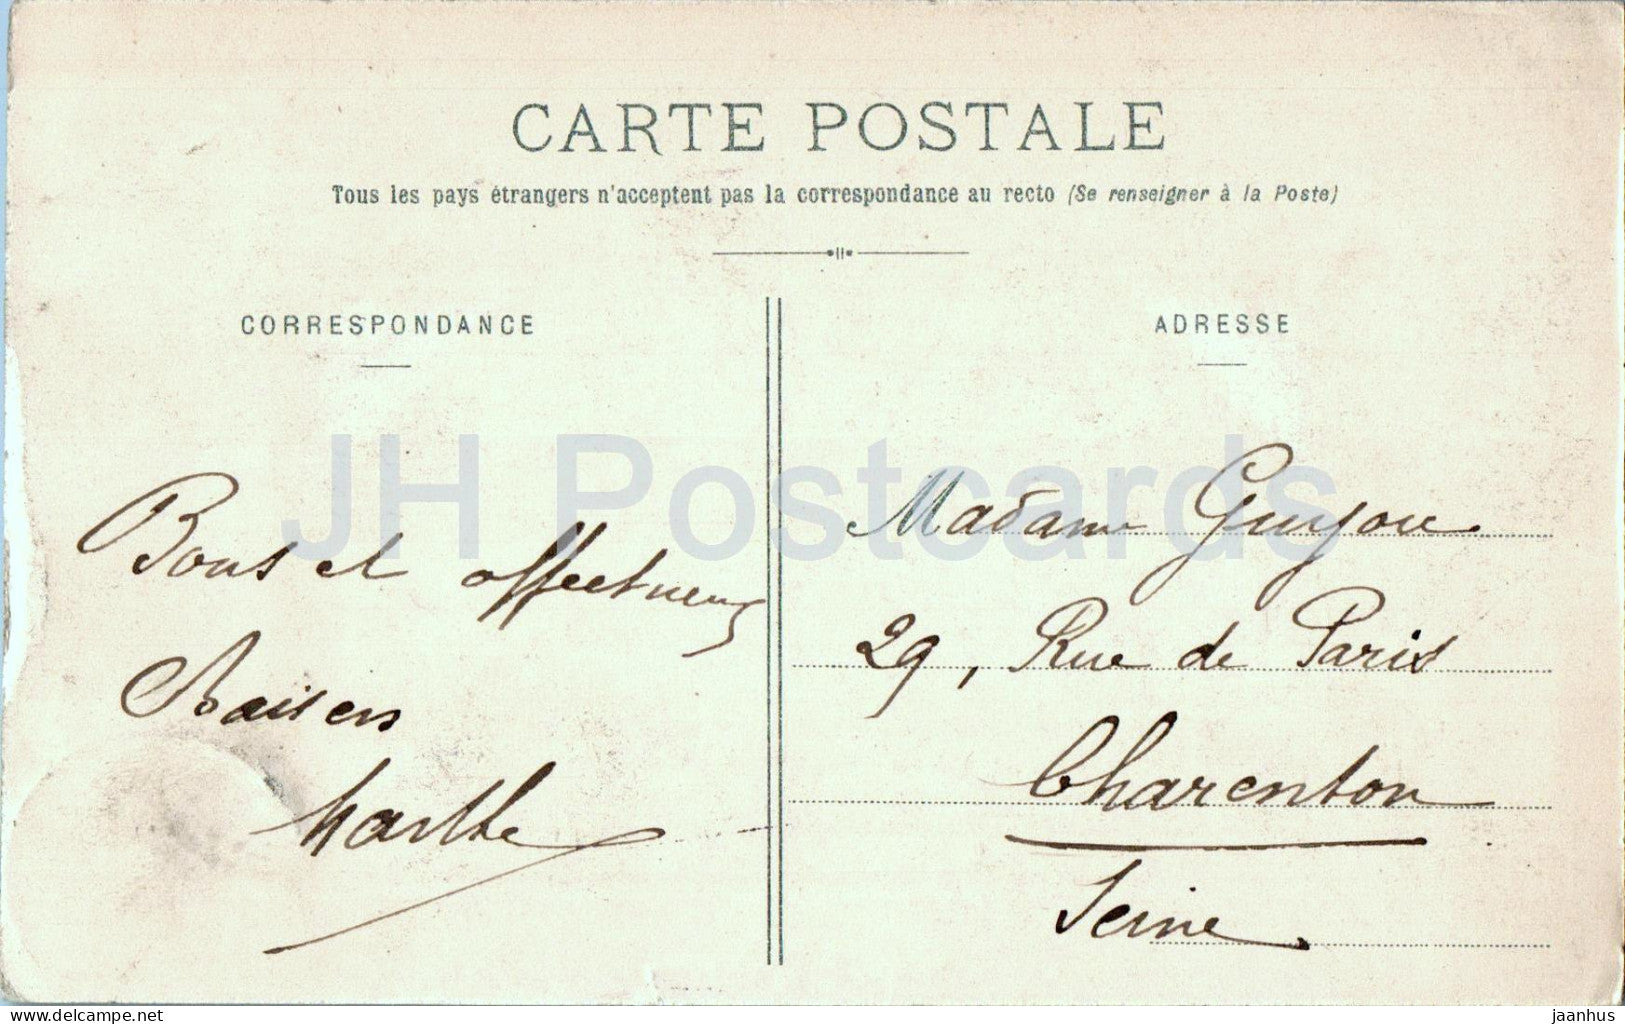 CARTE POSTALE
Tous les pays étrangers n'acceptent pas la correspondance au recto (Se renseigner à la Poste)
CORRESPONDANCE
ADRESSE
JH Postcards
Bons et affectueux
Baisers
Marthe
Madame Guyou
29, Rue de Paris
Charenton
Seine
www.delcampe.net
jaanhus